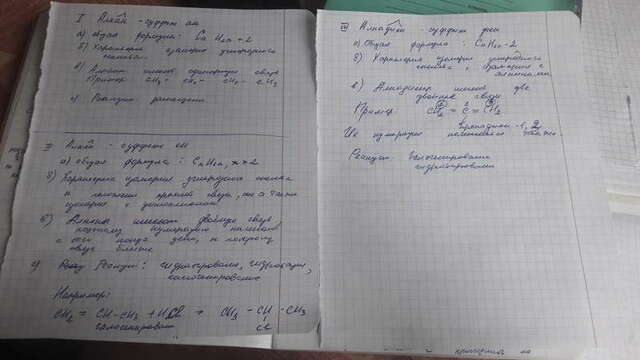 I Алкан - суффикс ан
а) общая формула: CnH2n+2
б) Характерна изомерия углеродного
скелета.
в) Алканы имеют одинарную связь
Пример CH3 - CH2 - CH2 - CH3
г) Реакции замещения
II Алкен - суффикс ен
а) общая формула: CnH2n, n ≥ 2
б) Характерна изомерия углеродного скелета
и положения кратной связи, а также
изомерия с циклоалканами
в) Алкены имеют двойную связь,
поэтому нумерацию начинают
с того конца цепи, к которому
связь ближе
г) Реакции: гидрирование, гидратация,
галогенирование
Например:
CH2 = CH-CH3 + HCl → CH3 - CH - CH3
Cl
галогенирован
III Алкадиен - суффикс диен
а) Общая формула: CnH2n-2
б) Характерна изомерия углеродного
скелета, изомерия с
алкинами
в) Алкадиены имеют две
двойные связи
Пример: CH2 = C = CH2
1 2 3
Их нумерация начинается также
- 1,2
Реакции: галогенирование
гидрирование